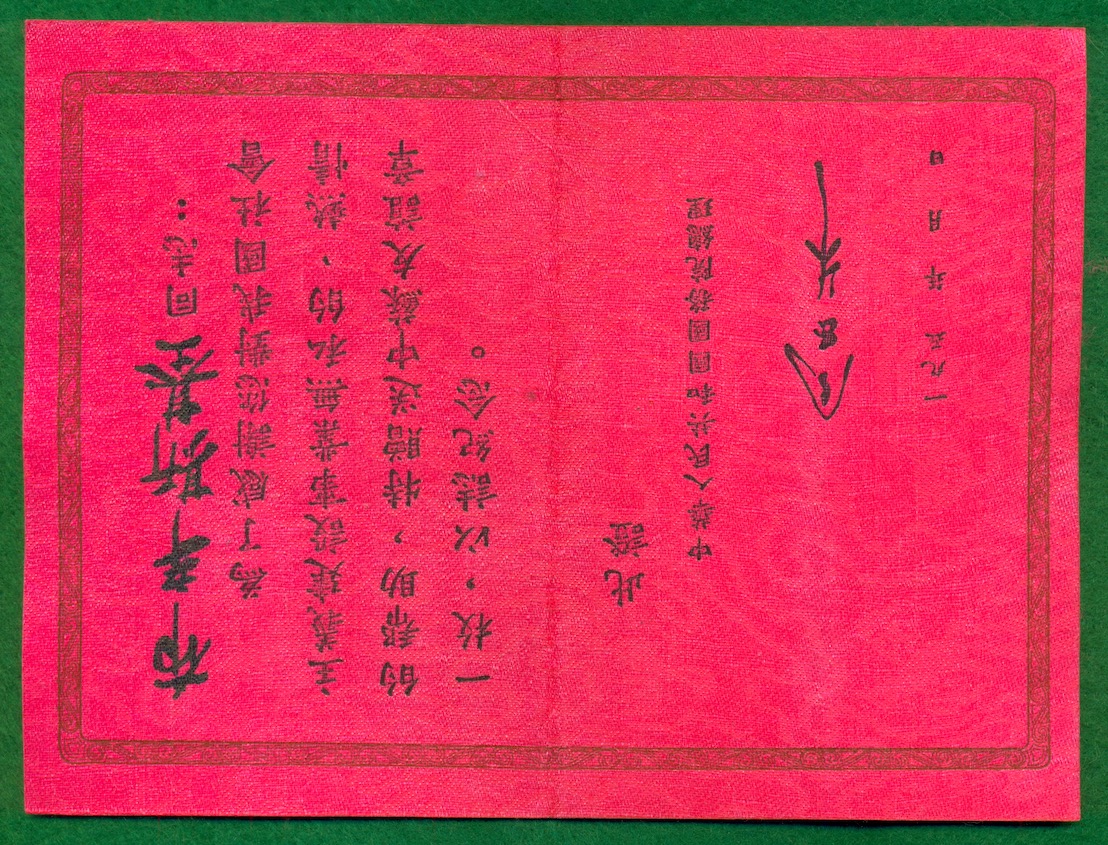 布辛斯基同志：
為了感謝您對我國社會
主義建設事業無私的、熱情
的幫助，特贈送中蘇友誼章
一枚，以誌紀念。
此證
中華人民共和國國務院總理
周恩来
一九五 年 月 日